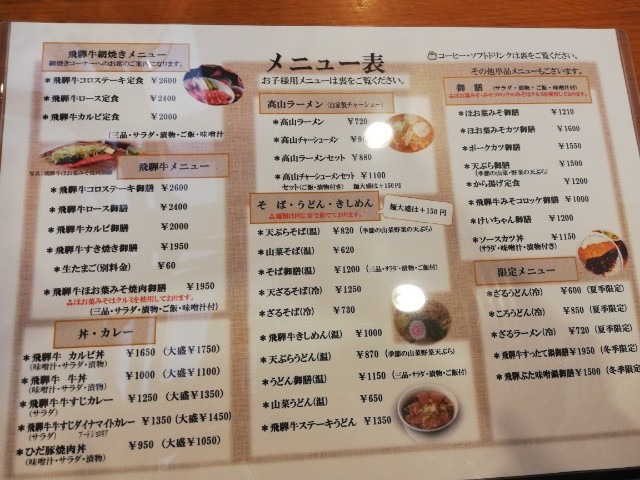 飛騨牛網焼きメニュー
網焼きコーナーへのお席のご案内になります。
＊飛騨牛コロステーキ定食 ¥2600
＊飛騨牛ロース定食 ¥2400
＊飛騨牛カルビ定食 ¥2000
(三品・サラダ・漬物・ご飯・味噌汁付)
写真:飛騨牛ほお葉みそ焼肉御膳
飛騨牛メニュー
＊飛騨牛コロステーキ御膳 ¥2600
＊飛騨牛ロース御膳 ¥2400
＊飛騨牛カルビ御膳 ¥2000
＊飛騨牛すき焼き御膳 ¥1950
＊生たまご(別料金) ¥60
＊飛騨牛ほお葉みそ焼肉御膳 ¥1950
⚠ほお葉みそはクルミを使用しております。
(三品・サラダ・漬物・ご飯・味噌汁付)
丼・カレー
＊飛騨牛 カルビ丼 ¥1650 (大盛¥1750)
(味噌汁・サラダ・漬物)
＊飛騨牛 牛丼 ¥1000 (大盛¥1100)
(味噌汁・サラダ・漬物)
＊飛騨牛牛すじカレー ¥1250 (大盛¥1350)
(サラダ)
＊飛騨牛牛すじダイナマイトカレー ¥1350 (大盛¥1450)
(サラダ)
＊ひだ豚焼肉丼 ¥950 (大盛¥1050)
(味噌汁・サラダ・漬物)
メニュー表
お子様用メニューは裏をご覧ください。
高山ラーメン (自家製チャーシュー)
＊高山ラーメン ¥720
＊高山チャーシューメン
＊高山ラーメンセット ¥880
＊高山チャーシューメンセット ¥1100
セット(ご飯・漬物付き) 麺大盛は＋150円
そば・うどん・きしめん
⚠麺類は同じ釜で茹でております。
麺大盛は＋150円
＊天ぷらそば(温) ¥820 (季節の山菜野菜の天ぷら)
＊山菜そば(温) ¥620
＊そば御膳(温) ¥1200 (三品・サラダ・漬物・ご飯付)
＊天ざるそば(冷) ¥1250
＊ざるそば(冷) ¥730
＊飛騨牛きしめん(温) ¥1000
＊天ぷらうどん(温) ¥870 (季節の山菜野菜天ぷら)
＊うどん御膳(温) ¥1150 (三品・サラダ・漬物・ご飯付)
＊山菜うどん(温) ¥650
＊飛騨牛ステーキうどん ¥1350
コーヒー・ソフトドリンクは裏をご覧ください。
その他単品メニューもございます。
御膳 (サラダ・漬物・ご飯・味噌汁付)
⚠ほお葉みそ・みそコロッケのみそはクルミを使用しております。
＊ほお葉みそ御膳 ¥1210
＊ほお葉みそカツ御膳 ¥1600
＊ポークカツ御膳 ¥1550
＊天ぷら御膳 ¥1500
(季節の山菜・野菜の天ぷら)
＊から揚げ定食 ¥1200
＊飛騨牛みそコロッケ御膳 ¥1000
＊けいちゃん御膳 ¥1200
＊ソースカツ丼 ¥1150
(サラダ・味噌汁・漬物付き)
限定メニュー
＊ざるうどん(冷) ¥600 (夏季限定)
＊ころうどん(冷) ¥850 (夏季限定)
＊ざるラーメン(冷) ¥720 (夏季限定)
＊飛騨牛すったて鍋御膳¥1950 (冬季限定)
＊飛騨ぶた味噌鍋御膳¥1500 (冬季限定)